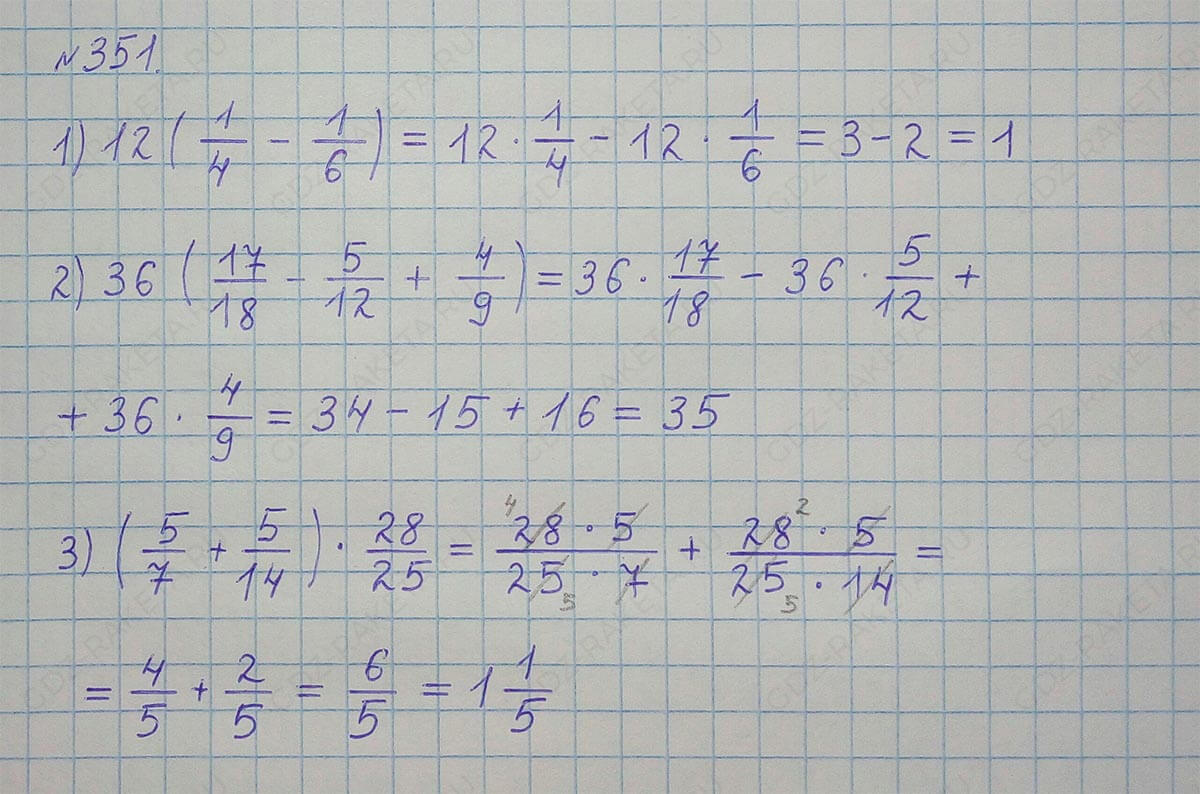 №351.
1) 12 (1/4 - 1/6) = 12 · 1/4 - 12 · 1/6 = 3 - 2 = 1
2) 36 (17/18 - 5/12 + 4/9) = 36 · 17/18 - 36 · 5/12 +
+ 36 · 4/9 = 34 - 15 + 16 = 35
3) (5/7 + 5/14) · 28/25 = ⁴28 · 5 / 25₅ · 7 + 28² · 5 / 25₅ · 14 =
= 4/5 + 2/5 = 6/5 = 1 1/5
GDZ-RAKETA.RU